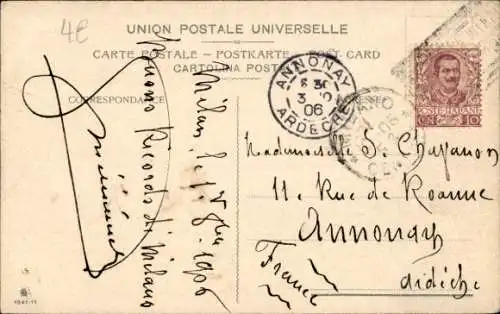 4€
UNION POSTALE UNIVERSELLE
CARTE POSTALE - POSTKARTE - POST-CARD
CARTOLINA POST
CORRESPONDANCE
ANNONAY
3
06
ARDECHE
POSTE ITALIANE
10
Milan, le 1906
Ricordo di Milano
Mademoiselle S. Chapanon
11, Rue de Roanne
Annonay
Ardèche
France